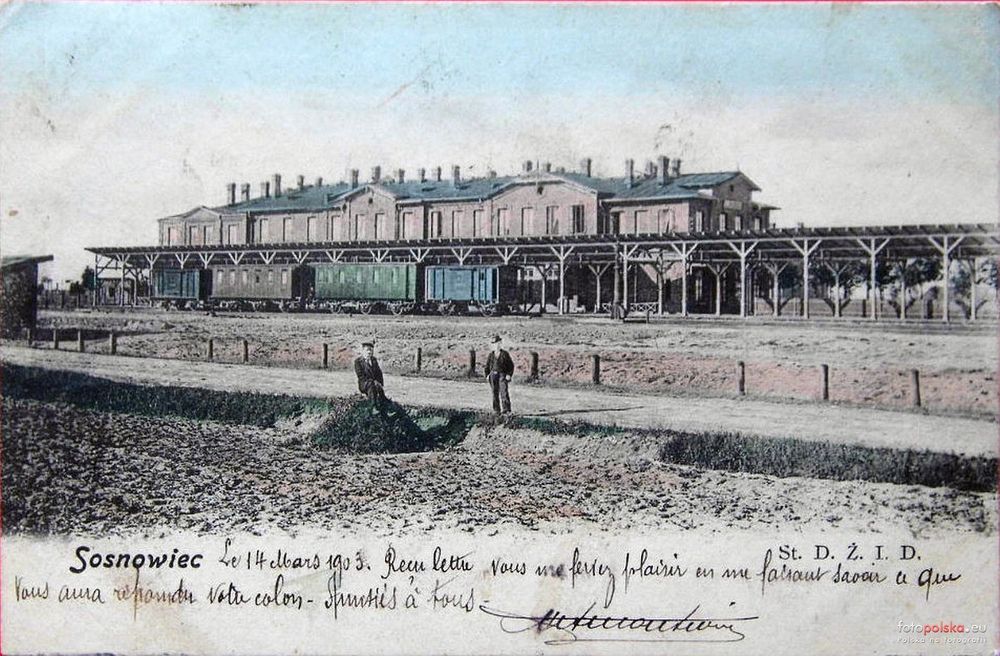 Sosnowiec Le 14 Mars 1903. Reçu lettre vous me feriez plaisir en me faisant savoir ce que
St. D. Ż. I. D.
Vous aura répondu votre colon - Amitiés à tous -
fotopolska.eu
Polska na fotografii